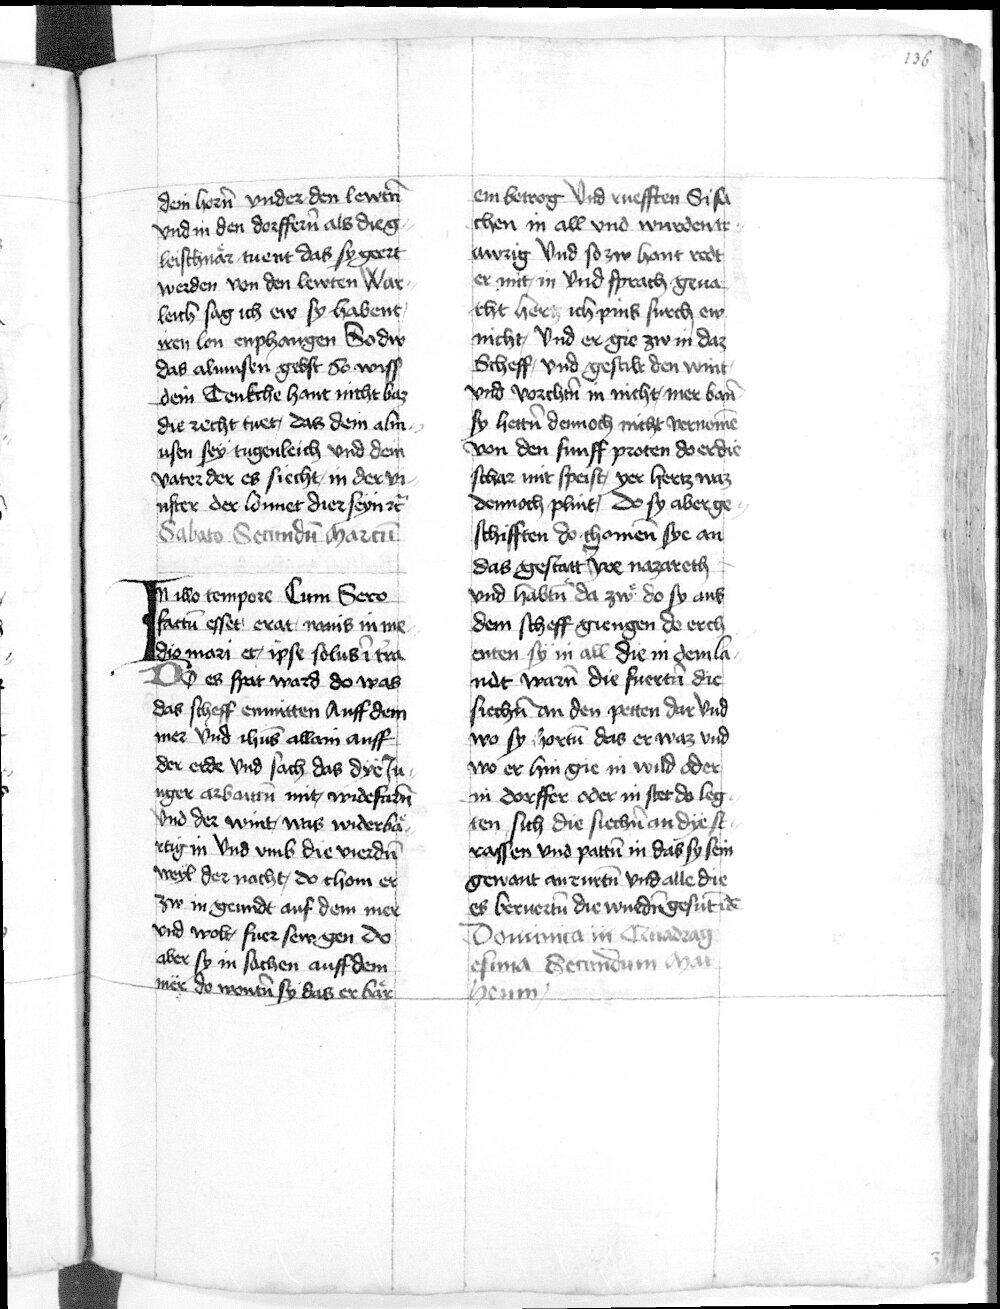 136
dein horn̄ vnder den lewtn̄
vnd in den dorffern̄ als die g-
leischnär tuent das sy geert
werden von den lewten War-
leich sag ich ew sy habent
iren lon enphangen So dw
das almusen gebst So wiss
dein Tenkche hant nicht baz
die recht tuet das dein alm-
usen sey tugenleich vnd dein
vater der es siecht in der vi-
nster der lonnet dier seyn ꝛc̄
Sabato Secundū Marcū
In illo tempore Cum Sero
factū esset erat nauis in me-
dio mari et ipse solus ī tra
Do es spat ward do was
das scheff enmitten Auff dem
mer Vnd ihūs allain auff
der erde Vnd sach das dye Ju-
nger arbaittn̄ mit widefarn̄
Vnd der wint was widerbä-
rtig in Vnd vmb die vierdn̄
weyl der nacht do chom er
zw in geundt auf dem mer
vnd wolt fuer sew gen Do
aber sy in sachen auff dem
mër do wontn̄ sy das er bär
ein betrog Vnd ruefften Si sa
chen in all vnd wurdent tr-
awrig Vnd so zw hant redt
er mit in Vnd sprach geua
cht hertz ich pins furch ew
nicht Vnd er gie zw in daz
Scheff vnd gestilt den wint
vnd vorchtn̄ in nicht mer ban̄
sy hettn̄ dennoch nicht vernomē
von den funff proten do er die
schar mit speist yer hertz waz
dennoch plint Do sy aber ge-
schifften do chomen̄ sye an
das gestatt Vor nazareth
vnd habtn̄ da zw do sy aus
dem scheff giengen do erch
enten sy in all die in dem la-
ndt warn̄ die fuertn̄ die
siechn̄ an den petten dar Vnd
wo sy hortn̄ das er waz vnd
wo er hin gie in wild oder
in dorffer oder in stet do leg-
ten sich die siechn̄ an dye st-
rassen vnd pattn̄ in das sy sein
gewant anrurtn̄ Vnd alle die
es beruertn̄ die wurdn̄ gesūt ꝛc̄
Dominica in Quadrag
esima Secundum Mat
heum